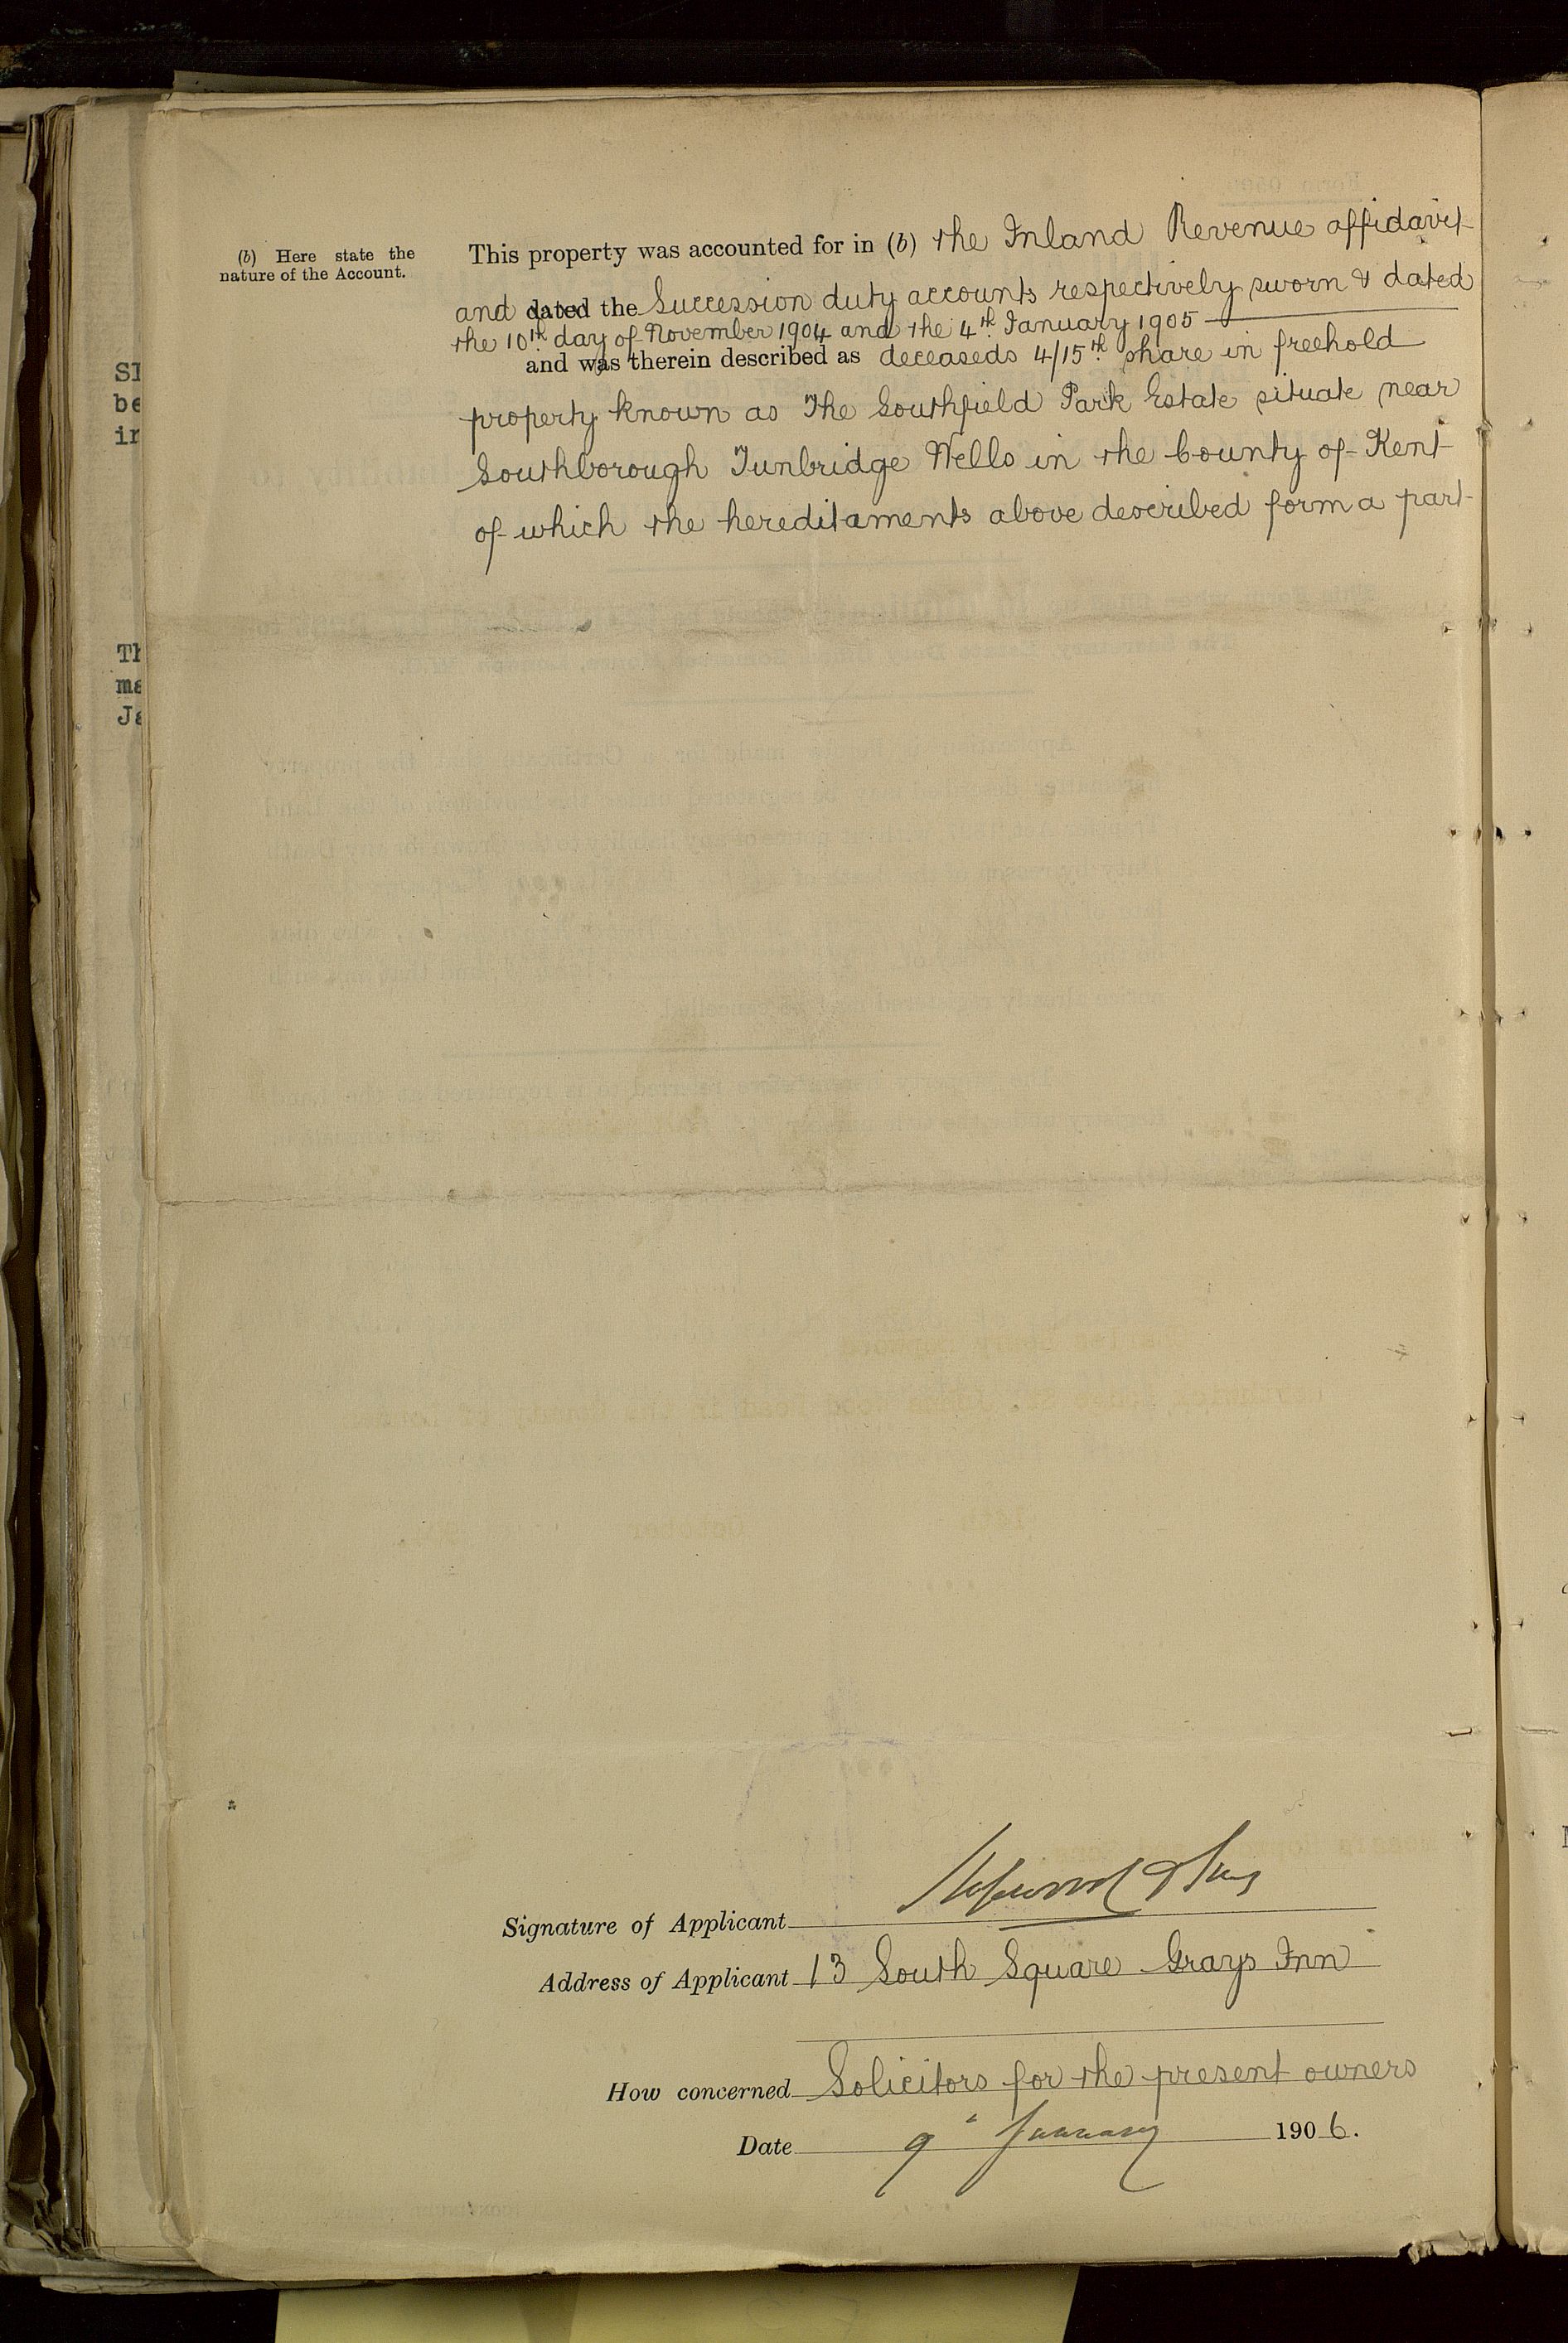 (b) Here state the
nature of the Account.
This property was accounted for in (b) the Inland Revenue affidavit
and dated the Succession duty accounts respectively sworn & dated
the 10th day of November 1904 and the 4th January 1905
and was therein described as deceaseds 4/15th share in freehold
property known as The Southfield Park Estate situate near
Southborough Tunbridge Wells in the County of Kent
of which the hereditaments above described form a part
Sl
be
in
Th
ma
Ja
Signature of Applicant Hopwood & Sons
Address of Applicant 13 South Square Grays Inn
How concerned Solicitors for the present owners
Date 9th January 1906.